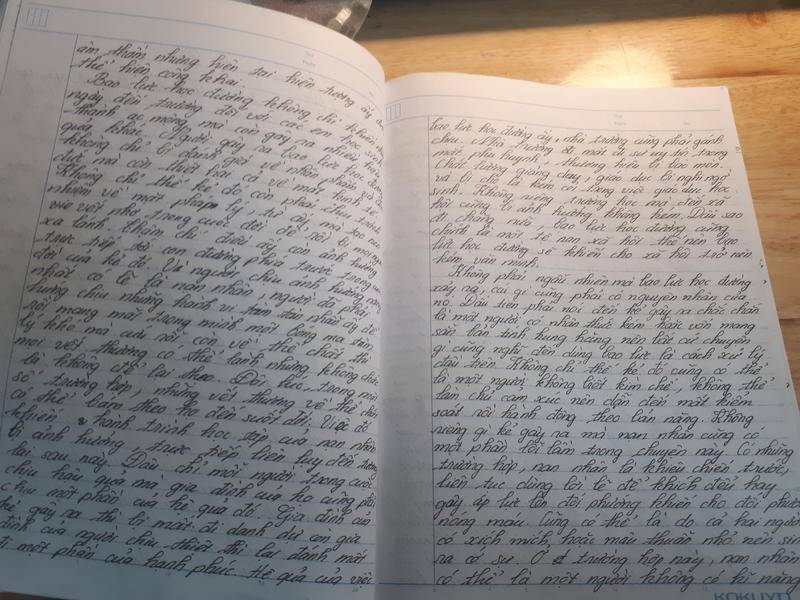 âm thầm nhưng hiện tại hiện tượng ấy
thể hiện công khai.
Bạo lực học đường không chỉ khiến
ngày đến trường đối với các em học sinh
thành ác mộng mà còn gây ra nhiều hậu
quả khác. Người gây ra bạo lực học đường
không chỉ bị đánh giá về nhân phẩm và đạo
đức mà còn thiệt hại cả về mặt kinh tế.
Không chỉ thế kẻ đó còn phải chịu trách
nhiệm về mặt pháp lý, từ ấy mà tạo nên
vết nhơ trong cuộc đời để rồi bị mọi người
xa lánh. Thậm chí điều ấy còn ảnh hưởng
trực tiếp tới con đường phía trước trong
đời của kẻ đó. Và người chịu ảnh hưởng nặng
nhất có lẽ là nạn nhân, người đã phải
hứng chịu những hành vi tàn nhẫn ấy để
rồi mang mãi trong mình một bóng ma tâm
lý khó mà cứu rỗi, còn về thể chất thì
mọi vết thương có thể lành nhưng không chắc
là không để lại thẹo. Đôi lúc, trong một
số trường hợp, những vết thương về thể chất
có thể bám theo họ đến suốt đời. Việc đó
khiến hành trình học tập của nạn nhân
bị ảnh hưởng, trực tiếp liên lụy đến tương
lai sau này. Dẫu chỉ mỗi người trong cuộc
chịu hậu quả mà gia đình của họ cũng phải
chịu một phần của hệ quả đó. Gia đình của
kẻ gây ra thì bị mất đi danh dự còn gia
đình của người chịu thiệt thì lại đánh mất
đi một phần của hạnh phúc. Hệ quả của việc
bạo lực học đường ấy, nhà trường cũng phải gánh
chịu. Nhà trường ấy mất đi sự uy tín trong
mắt phụ huynh, thương hiệu bị bào mòn.
Chất lượng giảng dạy, giáo dục bị nghi ngờ
và bị cho là kém cỏi trong việc giáo dục học
sinh. Không riêng trường học mà đến xã
hội cũng bị ảnh hưởng không kém. Dẫu sao
đi chăng nữa, bạo lực học đường cũng
chính là một tệ nạn xã hội thế nên bạo
lực học đường sẽ khiến cho xã hội trở nên
kém văn minh.
Không phải ngẫu nhiên mà bạo lực học đường
xảy ra, cái gì cũng phải có nguyên nhân của
nó. Đầu tiên phải nói đến kẻ gây ra chắc chắn
là một người có nhận thức kém hoặc vốn mang
sẵn bản tính hung hăng nên bất cứ chuyện
gì cũng nghĩ đến dùng bạo lực là cách xử lý
đầu tiên. Không chỉ thế kẻ đó cũng có thể
là một người không biết kìm chế, không thể
làm chủ cảm xúc nên dẫn đến mất kiểm
soát rồi hành động theo bản năng. Không
riêng gì kẻ gây ra mà nạn nhân cũng có
một phần lỗi lầm trong chuyện này. Có những
trường hợp, nạn nhân là khiêu chiến trước,
liên tục dùng lời lẽ để khích đểu hay
gây áp lực lên đối phương khiến cho đối phương
nóng máu. Cũng có thể là do cả hai người
có xích mích, hoặc mâu thuẫn nhỏ nên sinh
ra cớ sự. Ở trường hợp này, nạn nhân
có thể là một người không có kĩ năng
KOKUYO